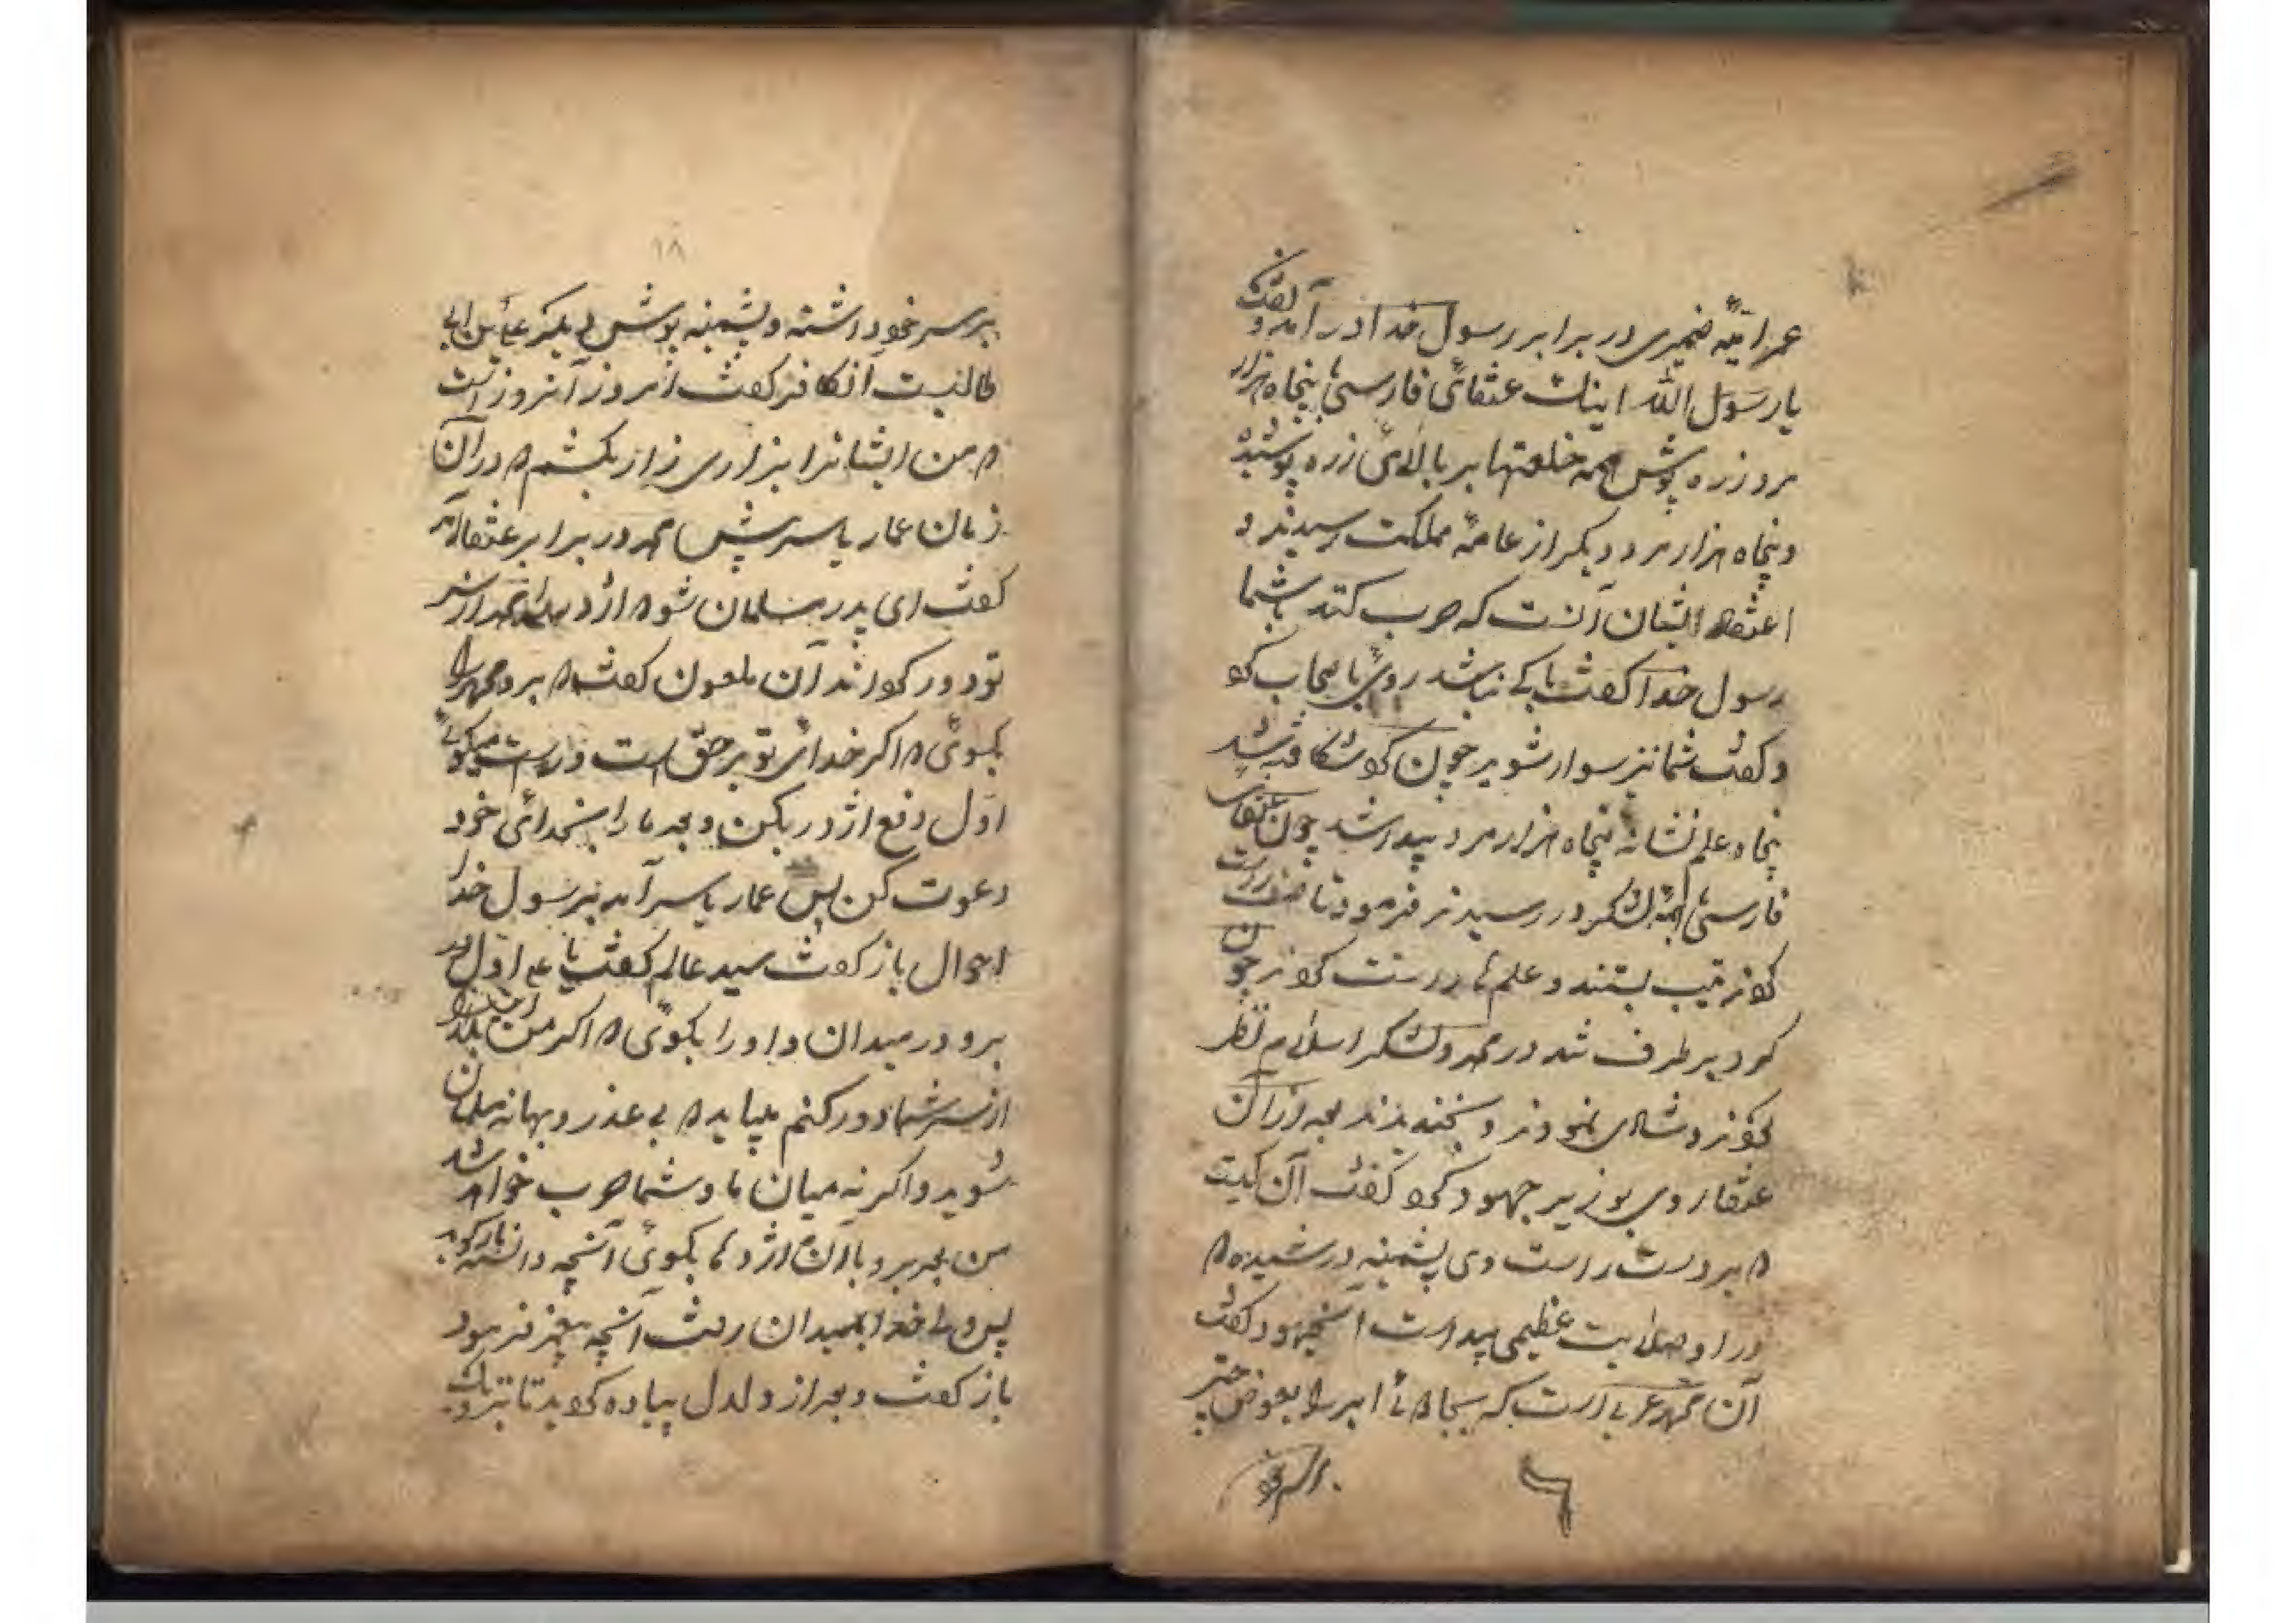 عمر امیهٔ ضمیری در برابر رسول خدا در آمد و گفت
یا رسول الله اینک عنقائی فارسی با پنجاه هزار
مرد زره پوش همه خلعتها بر بالائی زره پوشیده
و پنجاه هزار مرد دیگر از عامهٔ مملکت رسیدند و
اعتقاد ایشان آنست که حرب کنند با شما
رسول خدا گفت باکی نباشد روی با صحاب کو
و گفت شما نیز سوار شوید چون کو شکافته شد
پنجاه علم نشانهٔ پنجاه هزار مرد پیدا شد چون عنقای
فارسی با لشکر در رسیدند فرمود تا صف راست
کو ترتیب بستند و علم ها راست کو ند چون
کرد بر طرف شد در محمد و لشکر اسلام نظر
کو ند و شادی نمودند و بخندیدند بعد از آن
عنقا روی بوزیر جهود کو گفت آن کیست
که بر دست راست وی پشمینه در کشیده که
ورا و صلابت عظیمی پیداست آنجهود گفت
آن محمد عربی است که بعوض چتر
بر سر خود داشته و پشمینه پوش دیگر علی بن ابی
طالبست آنکافر گفت امروز آنروز است
که من ایشانرا بزاری زار بکشم که در آن
زمان عمار یاسر پیش آمد در برابر عنقا آمد
گفت ای پدر مسلمان شو که اژدها را محمد از سر
تو دور کو اند آن ملعون گفت که برو محمد را
بگوئی که اگر خدائی تو بر حق است و راست میگوئی
اول دفع اژدر بکن و بعد ما را بخدائی خود
دعوت کن پس عمار یاسر آمد نزد رسول خدا
احوال باز گفت سید عالم گفت یا علی اول تو
برو در میدان و او را بگوئی که اگر من این بلا را
از سر شما دور کنم میباید که بی عذر و بهانه مسلمان
شوید و اگر نه میان ما و شما حرب خواهد شد
من بعد برو با آن اژدها بگوئی آنچه دانسته
پس ولی خدا بمیدان رفت آنچه پیغمبر فرمود
باز گفت و بعد از دلدل پیاده کو ید تا نزدیک